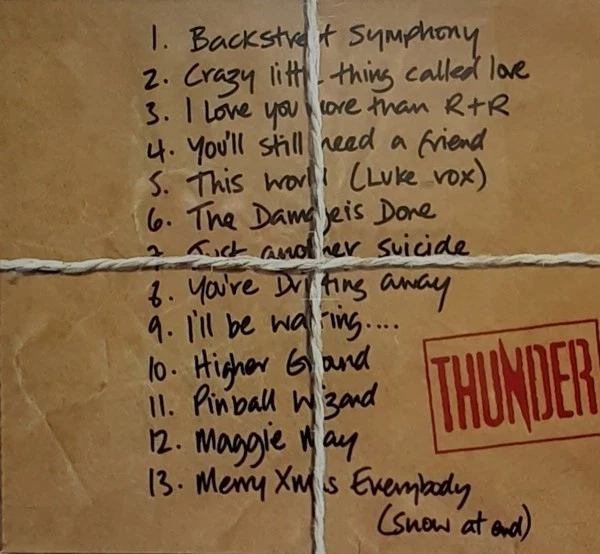 1. Backstreet Symphony
2. Crazy little thing called love
3. I Love you more than R+R
4. You'll still need a friend
5. This world (Luke vox)
6. The Damage is Done
7. Just another suicide
8. You're Drifting away
9. I'll be waiting....
10. Higher Ground
11. Pinball Wizard
12. Maggie May
13. Merry Xmas Everybody
(snow at end)
THUNDER